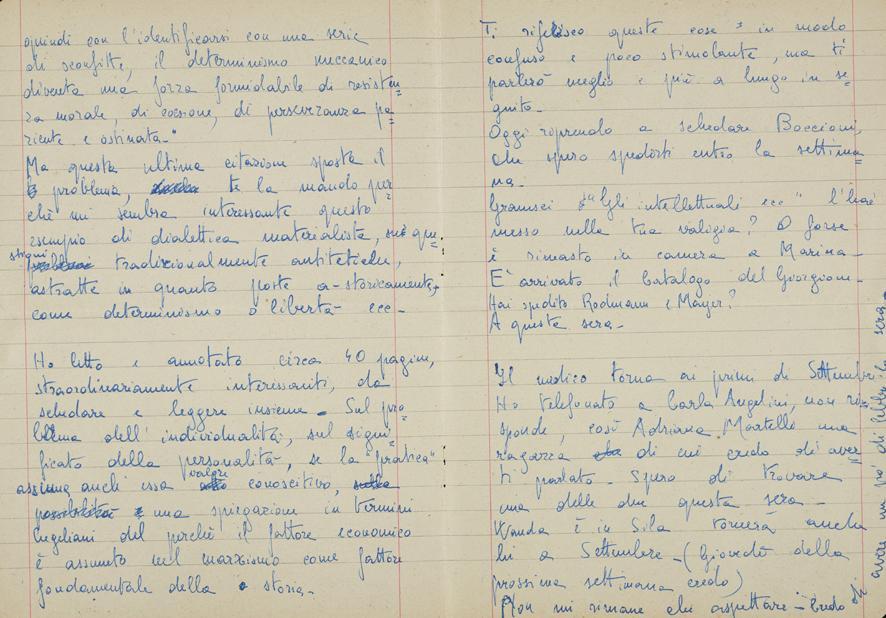 quindi con l'identificarsi con una serie
di sconfitte, il determinismo meccanico
diventa una forza formidabile di resisten=
za morale, di coesione, di perseveranza pa=
ziente e ostinata."
Ma questa ultima citazione sposta il
problema, te la mando per
chè mi sembra interessante questo
esempio di dialettica materialista, su que=
stioni tradizionalmente antitetiche,
astratte in quanto poste a-storicamente,
come determinismo o libertà ecc -
Ho letto e annotato circa 40 pagine,
straordinariamente interessanti, da
schedare e leggere insieme - Sul pro=
blema dell'individualità, sul signi=
ficato della personalità, se la "pratica"
assuma anch'essa valore conoscitivo,
una spiegazione in termini
hegeliani del perché il fattore economico
è assunto nel marxismo come fattore
fondamentale della storia -
Ti riferisco queste cose in modo
confuso e poco stimolante, ma ti
parlerò meglio e più a lungo in se=
guito -
Oggi riprendo a schedare Boccioni,
che spero spedirti entro la settima=
na -
Gramsci "Gli intellettuali ecc" l'hai
messo nella tua valigia? O forse
è rimasto in camera a Marina -
E' arrivato il Catalogo del Giorgione -
Hai spedito Rodmann e Mayer?
A questa sera -
Il medico torna ai primi di Settembre
Ho telefonato a Carla Angelini, non ri=
sponde, così Adriana Martelli una
ragazza di cui credo di aver
ti parlato - Spero di trovare
una delle due questa sera -
Wanda è in Sila tornerà anche
lei a Settembre - (Giovedì della
prossima settimana credo)
Non mi rimane che aspettare - Credo
di avere un pò di febbre la sera -